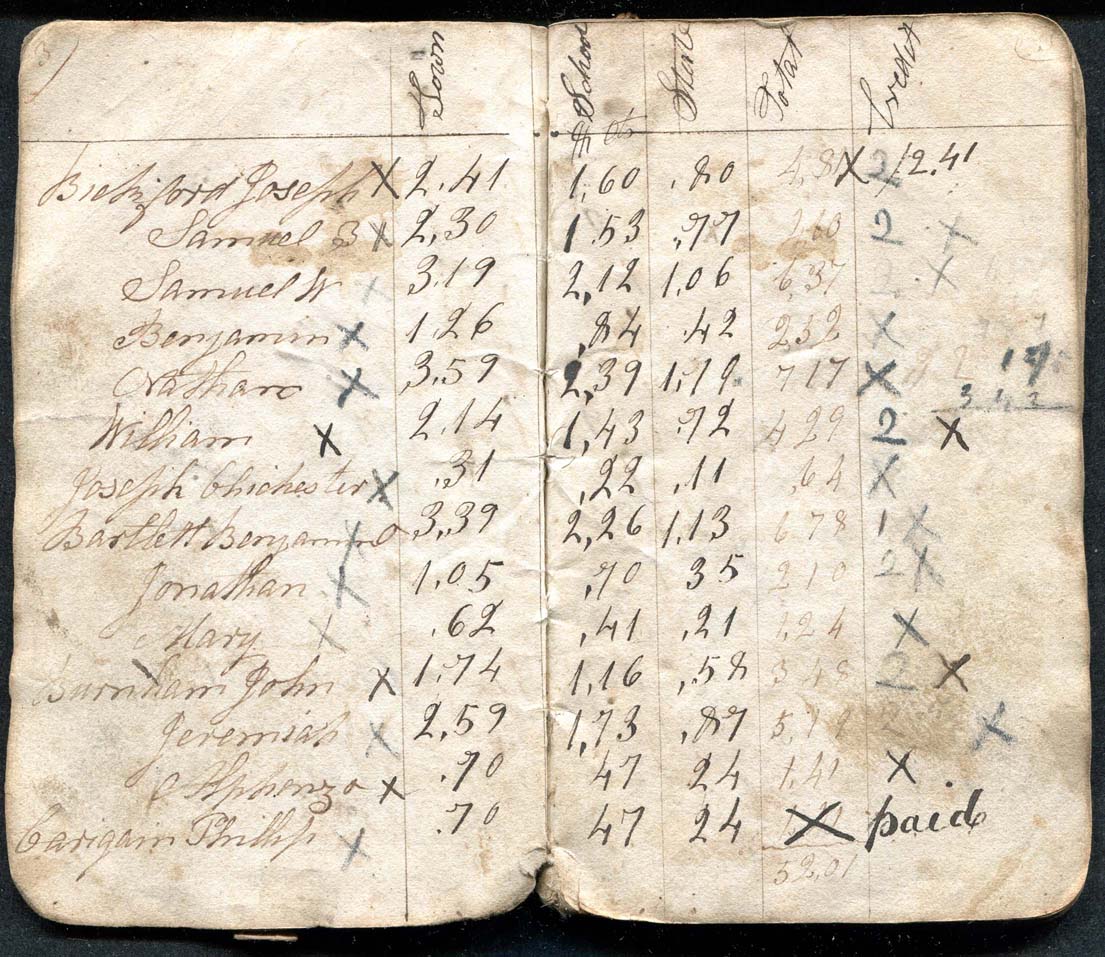 3)
Town School State Total Credit
$ cts
Bickford Joseph X 2.41 1,60 .80 4,81 X 2 12.41
Samuel B X 2,30 1 53 .77 2 X
Samuel W X 3.19 2,12 1.06 6,37 2 X
Benjamin X 1 26 ,84 .42 2 52 X
Nathan X 3.59 2,39 1,19 7 17 X
William X 2.14 1,43 .72 4 29 2 X
Joseph Chichester X .31 ,22 .11 ,64 X
Bartlett Benjamin X 3.39 2,26 1,13 6 78 1 X
Jonathan X 1.05 ,70 35 2 10 2 X
Mary X .62 ,41 .21 1,24 X
Burnham John X 1.74 1,16 ,58 3 48 2 X
Jeremiah X 2,59 1,73 .87 5,19 2 X
Alphenzo X .70 47 24 1,41 X
Carigain Phillip X .70 47 24 X paid
52,01